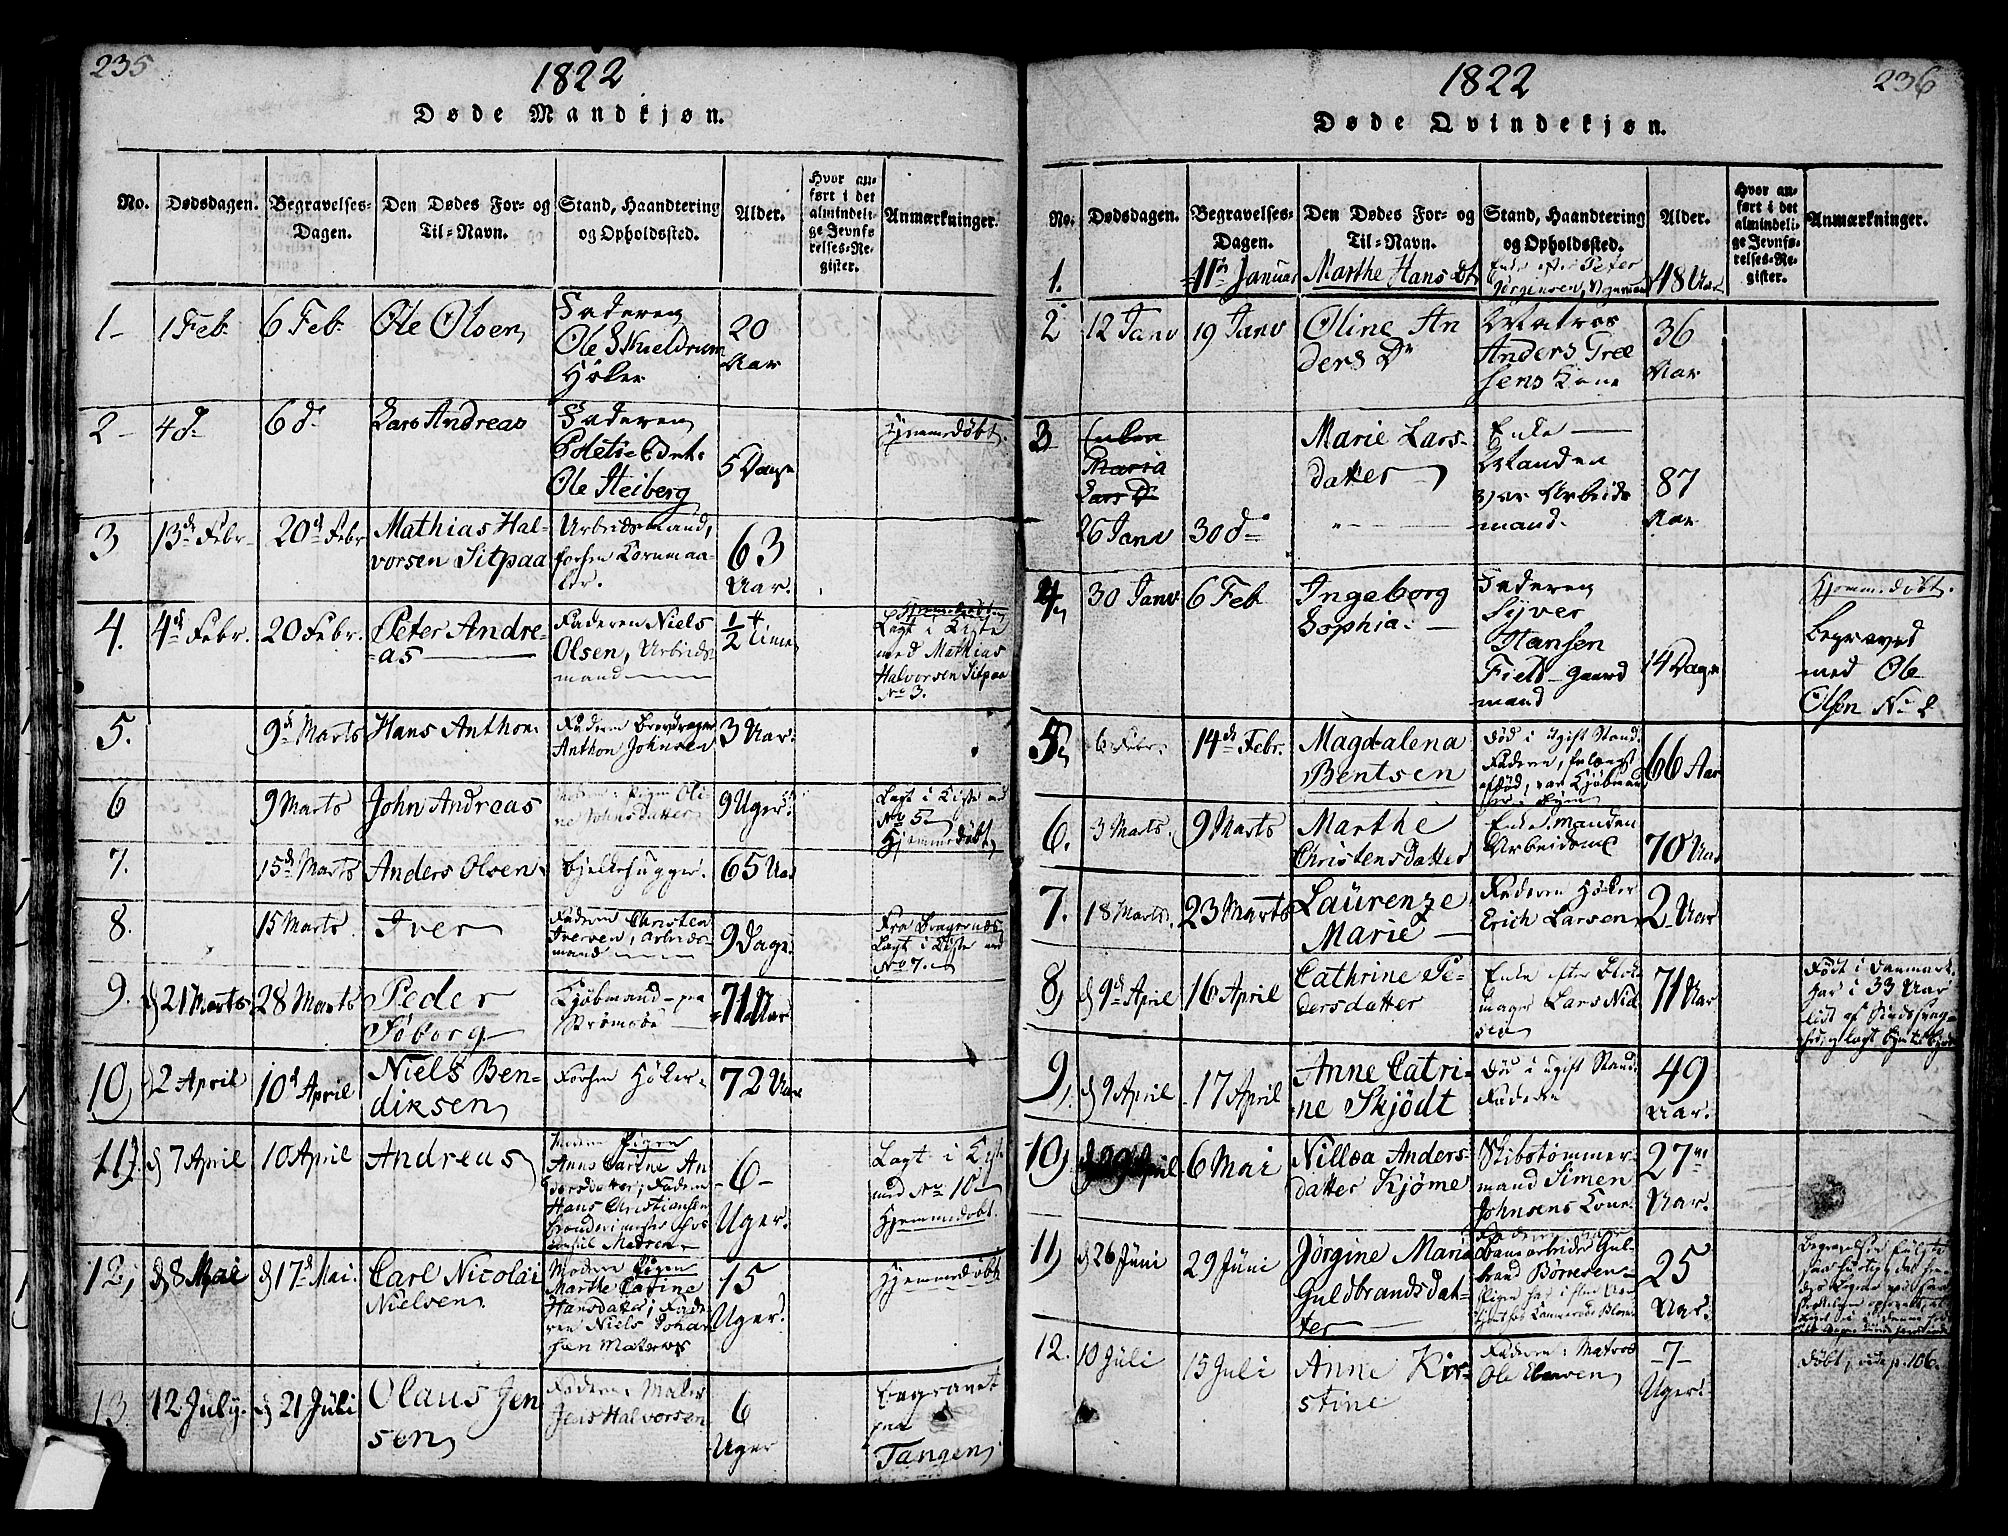 235
1822
Døde Mandkjøn.
No.
Dødsdagen.
Begravelses-
Dagen.
Den Dødes For- og
Til-Navn.
Stand, Haandtering
og Opholdssted.
Alder.
Hvor an-
ført i det
almindeli-
ge Jevnfø-
relses-Re-
gister.
Anmærkninger.
1 1 Feb 6 Feb. Ole Olsen
Faderen
Ole Skieldrum
Höker
20
Aar
2 4 d 6 d Lars Andreas
Faderen
Ole Heiberg
5 Dage
Hjemmedøbt.
3 13de Febr. 20de Febr
Mathias Hal-
vorsen Sitpaa
Arbeidsmand,
forhen Kornmaa-
ler.
63
Aar.
4. 4de Febr. 20 Febr.
Peter Andre-
as
Faderen Niels
Olsen, Arbeids
mand
1/2 Time
Lagt i Kiste
med Mathias
Halvorsen Sitpaa
No 3.
5. 9de Marts Hans Anthon.
Faderen Brevdrager
Anthon Johnsen
3 Aar.
6 9 Marts John Andreas
ne Johnsdatter
9 Uger
Lagt i Kiste med
No 5.
Hjemmedøbt
7. 15de Marts Anders Olsen
Bjelkehugger.
65 Aar
8. 15 Marts Iver
Faderen Christen
Iversen, Arbeids-
mand
9 Dage.
Fra Bragernes
Lagt i Kiste med
No 7.
9. d 21 Marts 28 Marts
Peder
Søborg
Kjøbmand paa
Strømsøe
71 Aar
10) d 2 April 10de April
Niels Ben-
diksen
Forhen Höker.
72 Aar
11). d 7 April 10 April Andreas
Moderen Pigen
Anne Cartne An-
dersdatter; Faderen
Hans Christiansen
6
Uger.
Lagt i Kiste
med No 10
Hjemmedöbt.
12) d 8 Mai d 17de Mai.
Carl Nicolai
Nielsen
Moderen Pigen
Marthe Carine
Hansdatter; Fade-
ren Niels Johan-
sen Matros
15
Uger.
Hjemmedöbt
13. 12 July. d 21 Juli
Olaus Jen
sen
Faderen Maler
Jens Halvorsen
6
Uger
Begravet
paa
Tangen
1822
236
Døde Qvindekjøn.
No.
Dødsdagen.
Begravelses-
Dagen.
Den Dødes For- og
Til-Navn.
Stand, Haandtering
og Opholdssted.
Alder.
Hvor an-
ført i det
almindeli-
ge Jevnfø-
relses-Re-
gister.
Anmærkninger.
1. 11te Januar Marthe Hans Dtr
Enke efter Peter
Jörgensen, Vognmand
48 Aar
2 12 Janv 19 Janv
Oline An
ders Dr
Matros
Anders Tree
sens Kone
36
Aar
3
Enken
Maria
Lars Dr
26 Janv 30 d
Marie Lars-
datter
Enke
Manden
var Arbeids
mand.
87
Aar
4 30 Janv 6 Feb
Ingeborg
Sophia.
Faderen
Syver
Hansen
Field - Gaard
mand
14 Dage
Hjemmedöbt.
Begraved
med Ole
Olsen No 1
5 6 Febr. 14de Febr.
Magdalena
Bentsen
Död i ugift Stand.
66 Aar
6. 3 Marts. 9 Marts
Marthe
Christensdatter
Enke. Manden
Arbeidsmd
70 Aar
7. 18 Marts. 23 Marts
Laurenze
Marie
Faderen Höker
Erich Larsen
2 Aar
8) d 9de April 16 April
Cathrine Pe-
dersdatter
Enke efter
mager Lars Niel
sen
71 Aar
Født i Danmark.
har i 33 Aar
9) d 9 April 17 April
Anne Catri-
ne Skjödt
Död i ugift Stand.
Faderen
49
Aar.
10) 29 April 6 Mai
Nillea Anders-
datter Kjöme
Skibstömmer-
mand Simen
Johnsens Kone.
27
Aar.
11) d 26 Juni 29 Juni
Jörgine Maria
Guldbrandsdat-
ter
arbeider Gul-
brand Börresen
25
Aar.
12. 10 Juli 15 Juli
Anne Kir-
stine
Faderen: Matros
Ole
7
Uger.
Döbt, vide p. 106.